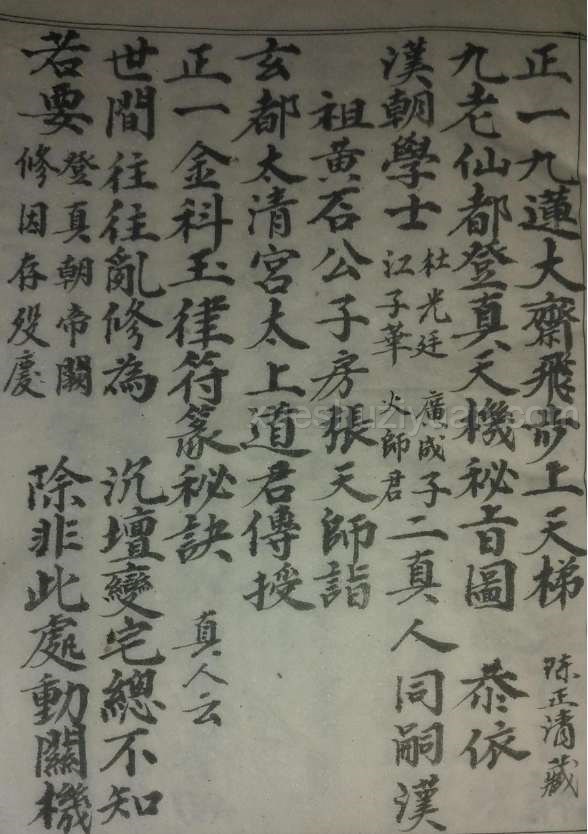 正一九蓮大齋飛步上天梯 陈正清藏
九老仙都登真天機秘旨圖 泰依
漢朝學士 杜光廷 江子華 廣成子 火師君 二真人同嗣漢
祖黃石公子房張天師詣
玄都太清宮太上道君傳授
正一金科玉律符篆秘訣 真人云
世間往往亂修為 沉壇變宅總不知
若要 登真朝帝闕 修因存殁慶 除非此處動關機